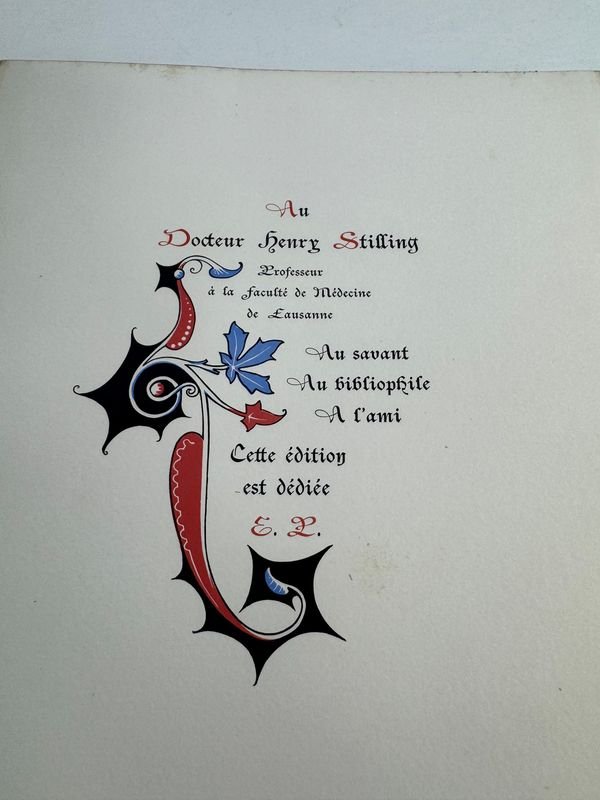 Au
Docteur Henry Stilling
Professeur
à la Faculté de Médecine
de Lausanne
Au savant
Au bibliophile
A l'ami
Cette édition
est dédiée
E. P.